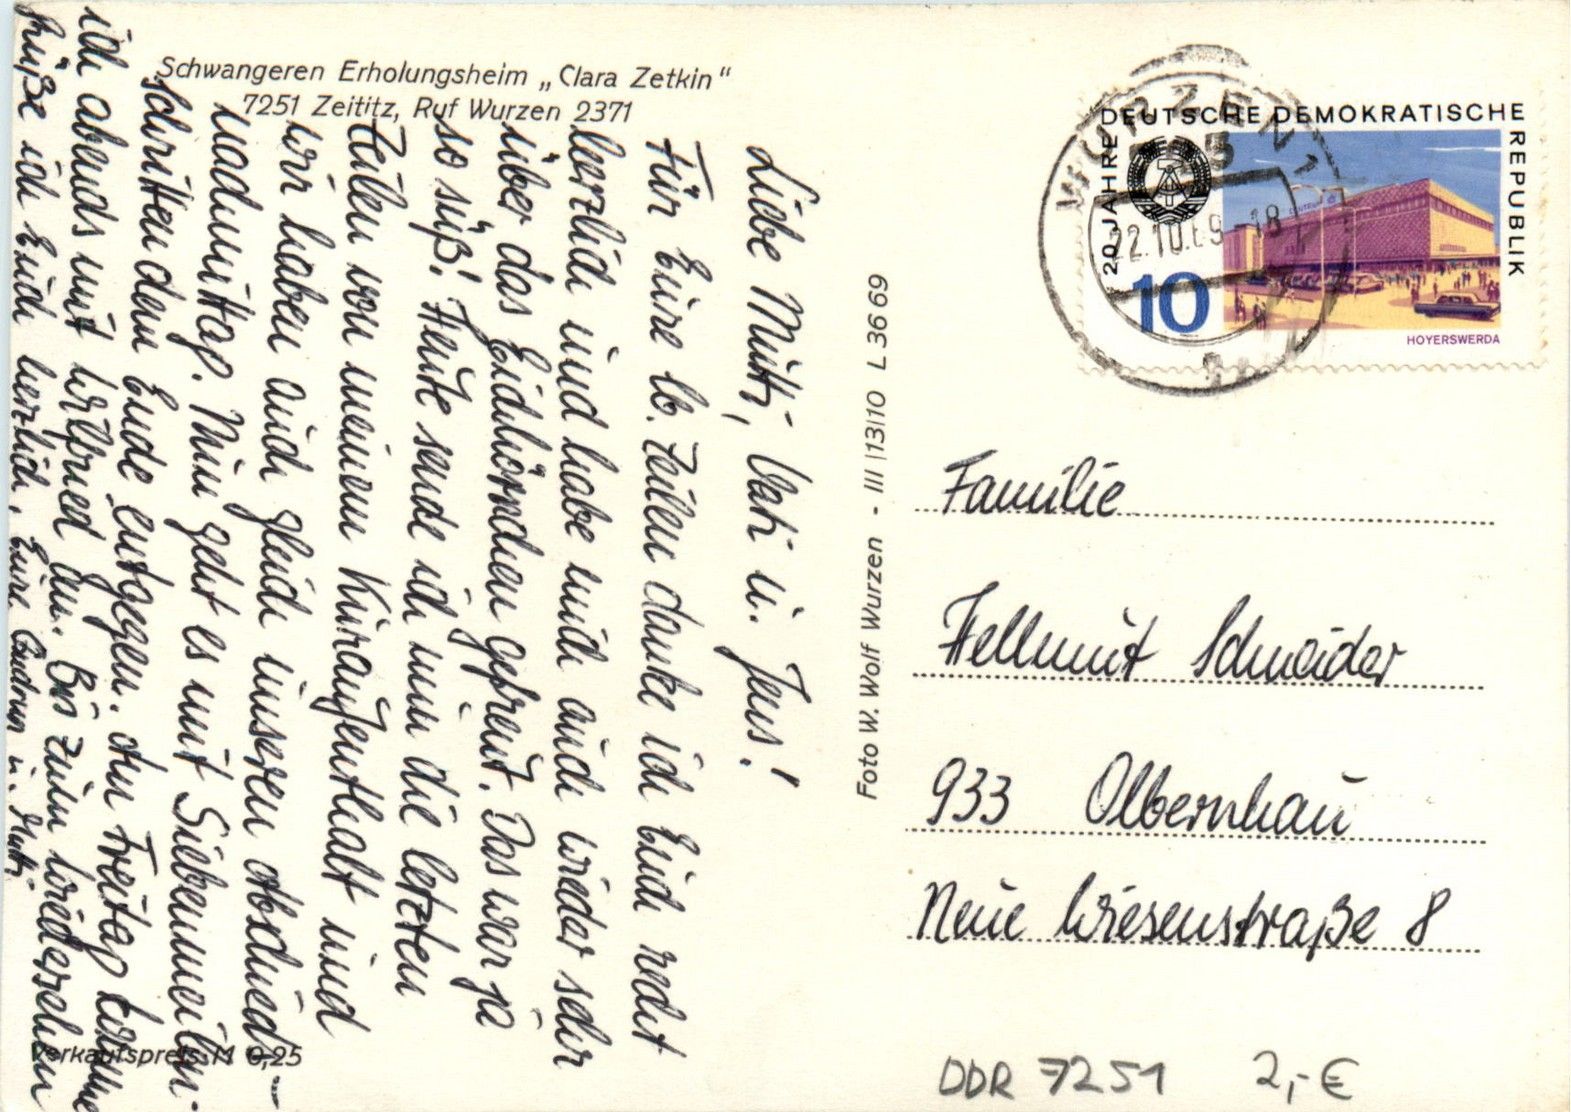 Schwangeren Erholungsheim „Clara Zetkin"
7251 Zeititz, Ruf Wurzen 2371
Liebe Mutti, Vati u. Jens!
Für Eure lb. Zeilen danke ich Euch recht
herzlich und habe mich auch wieder sehr
über das Eichhörnchen gefreut. Das war ja
so süß! Heute sende ich nun die letzten
Zeilen von meinem Kuraufenthalt und
wir haben auch gleich unseren Abschieds-
nachmittag. Nun geht es mit Siebenmeilen-
schritten dem Ende entgegen. Am Freitag komme
ich abends mit Wilfried an. Bis zum Wiedersehen
grüße ich Euch herzlich, Eure Gudrun u. Mutti
Verkaufspreis: M 0,25
Foto W. Wolf Wurzen - III|13|10 L 36 69
DEUTSCHE DEMOKRATISCHE
REPUBLIK
20 JAHRE
10
HOYERSWERDA
WURZEN 1
22.10.69 - 18
Familie
Hellmut Schneider
933 Olbernhau
Neue Wiesenstraße 8
DDR 7251 2,- €